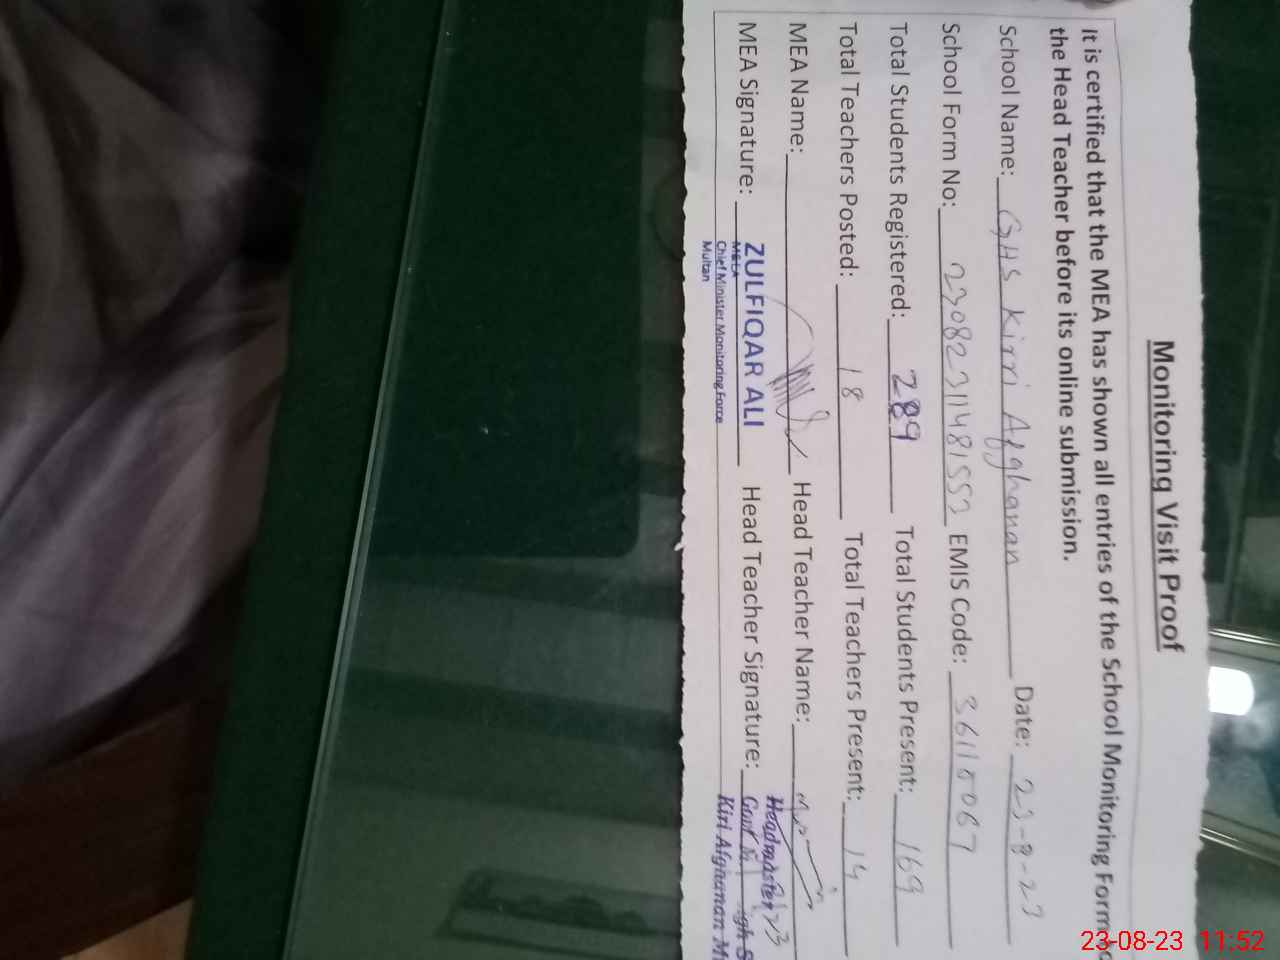 Monitoring Visit Proof
It is certified that the MEA has shown all entries of the School Monitoring Form
the Head Teacher before its online submission.
School Name: GHS Kirri Afghanan Date: 23-8-23
School Form No: EMIS Code: 36110067
Total Students Registered: 289 Total Students Present: 169
Total Teachers Posted: 18 Total Teachers Present: 14
MEA Name: Head Teacher Name:
MEA Signature: ZULFIQAR ALI Head Teacher Signature:
Chief Minister Monitoring Force
Multan
Headmaster
Kiri Afghanan
23-08-23 11:52